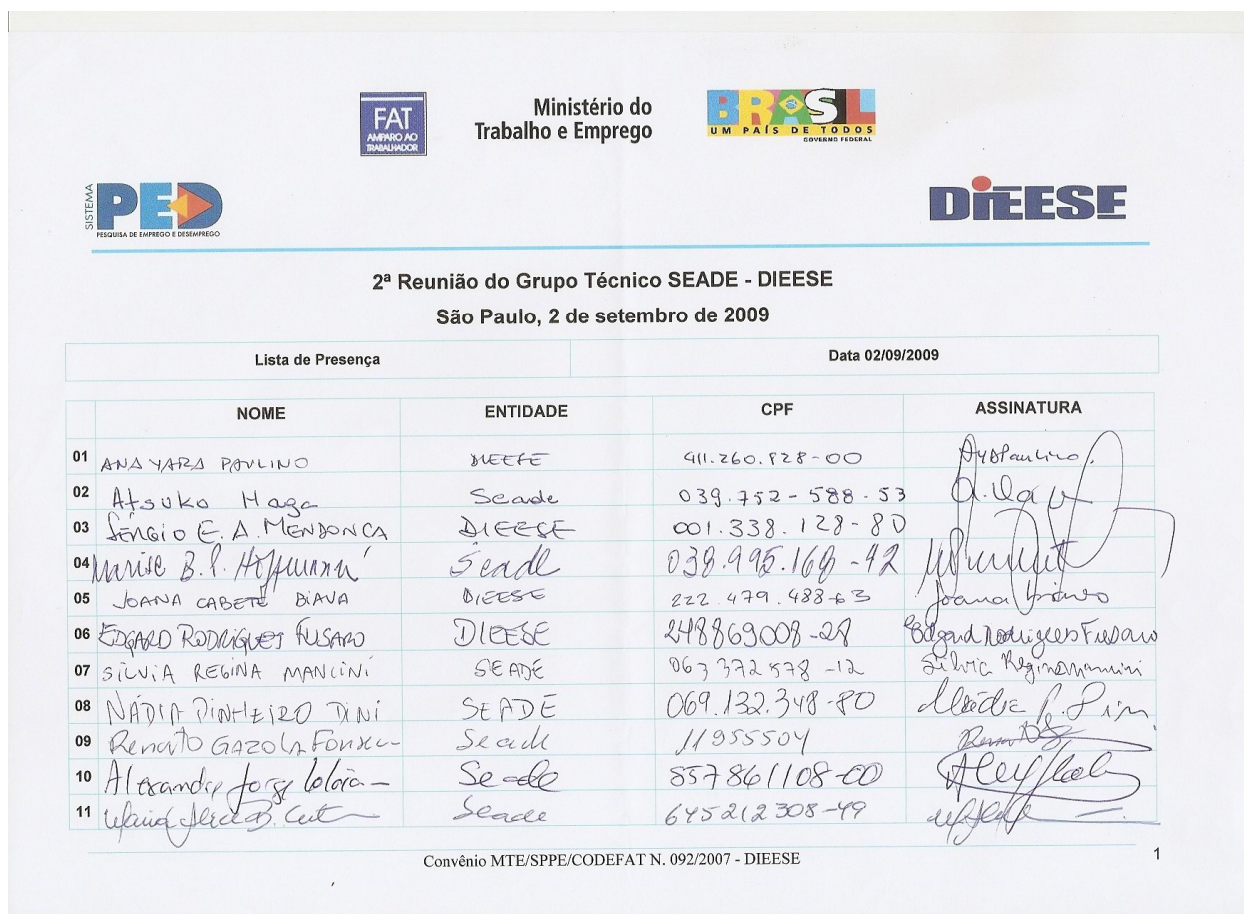 FAT
AMPARO AO
TRABALHADOR
Ministério do
Trabalho e Emprego
BRASIL
UM PAÍS DE TODOS
GOVERNO FEDERAL
SISTEMA
PED
PESQUISA DE EMPREGO E DESEMPREGO
DIEESE
2ª Reunião do Grupo Técnico SEADE - DIEESE
São Paulo, 2 de setembro de 2009
Lista de Presença Data 02/09/2009
NOME ENTIDADE CPF ASSINATURA
01 ANA YARA PAULINO DIEESE 411.260.828-00 AYPaulino.
02 Atsuko Haga Seade 039.752-588-53
03 SÉRGIO E. A. MENDONÇA DIEESE 001.338.128-80
04 Marise B. P. Hoffmann Seade 038.995.168-42
05 JOANA CABETE BIAVA DIEESE 222.479.488-63 Joana Biava
06 EDGARD RODRIGUES FUSARO DIEESE 248869008-28 Edgard Rodrigues Fusaro
07 SILVIA REGINA MANCINI SEADE 063372578-12 Silvia Regina Mancini
08 NÁDIA PINHEIRO DINI SEADE 069.132.348-80 Nádia P. Dini
09 Renato GAZOLA FONSECA Seade 11955504
10 Alexandre Jorge Loloian Seade 557861108-00
11 Maria Seade 645212308-49
Convênio MTE/SPPE/CODEFAT N. 092/2007 - DIEESE
1